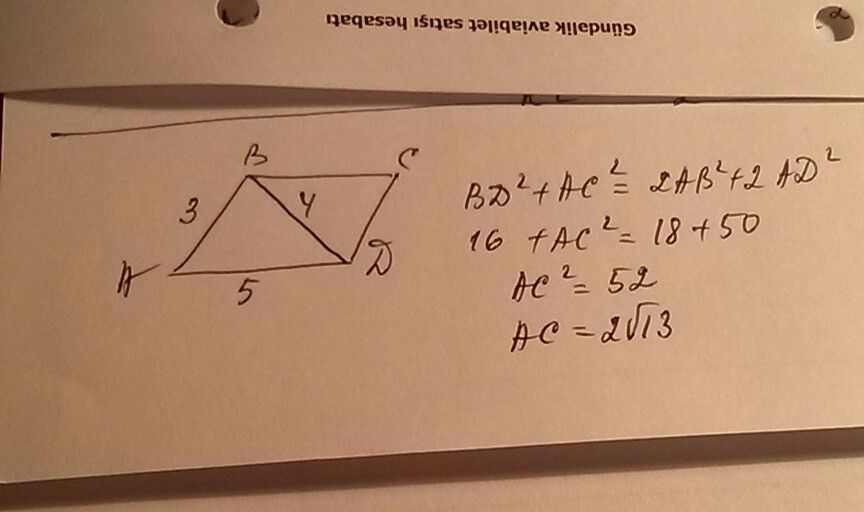 Gündəlik aviabilet satışı hesabatı
B
C
3
4
A
D
5
BD²+AC²=2AB²+2AD²
16+AC²=18+50
AC²=52
AC=2√13